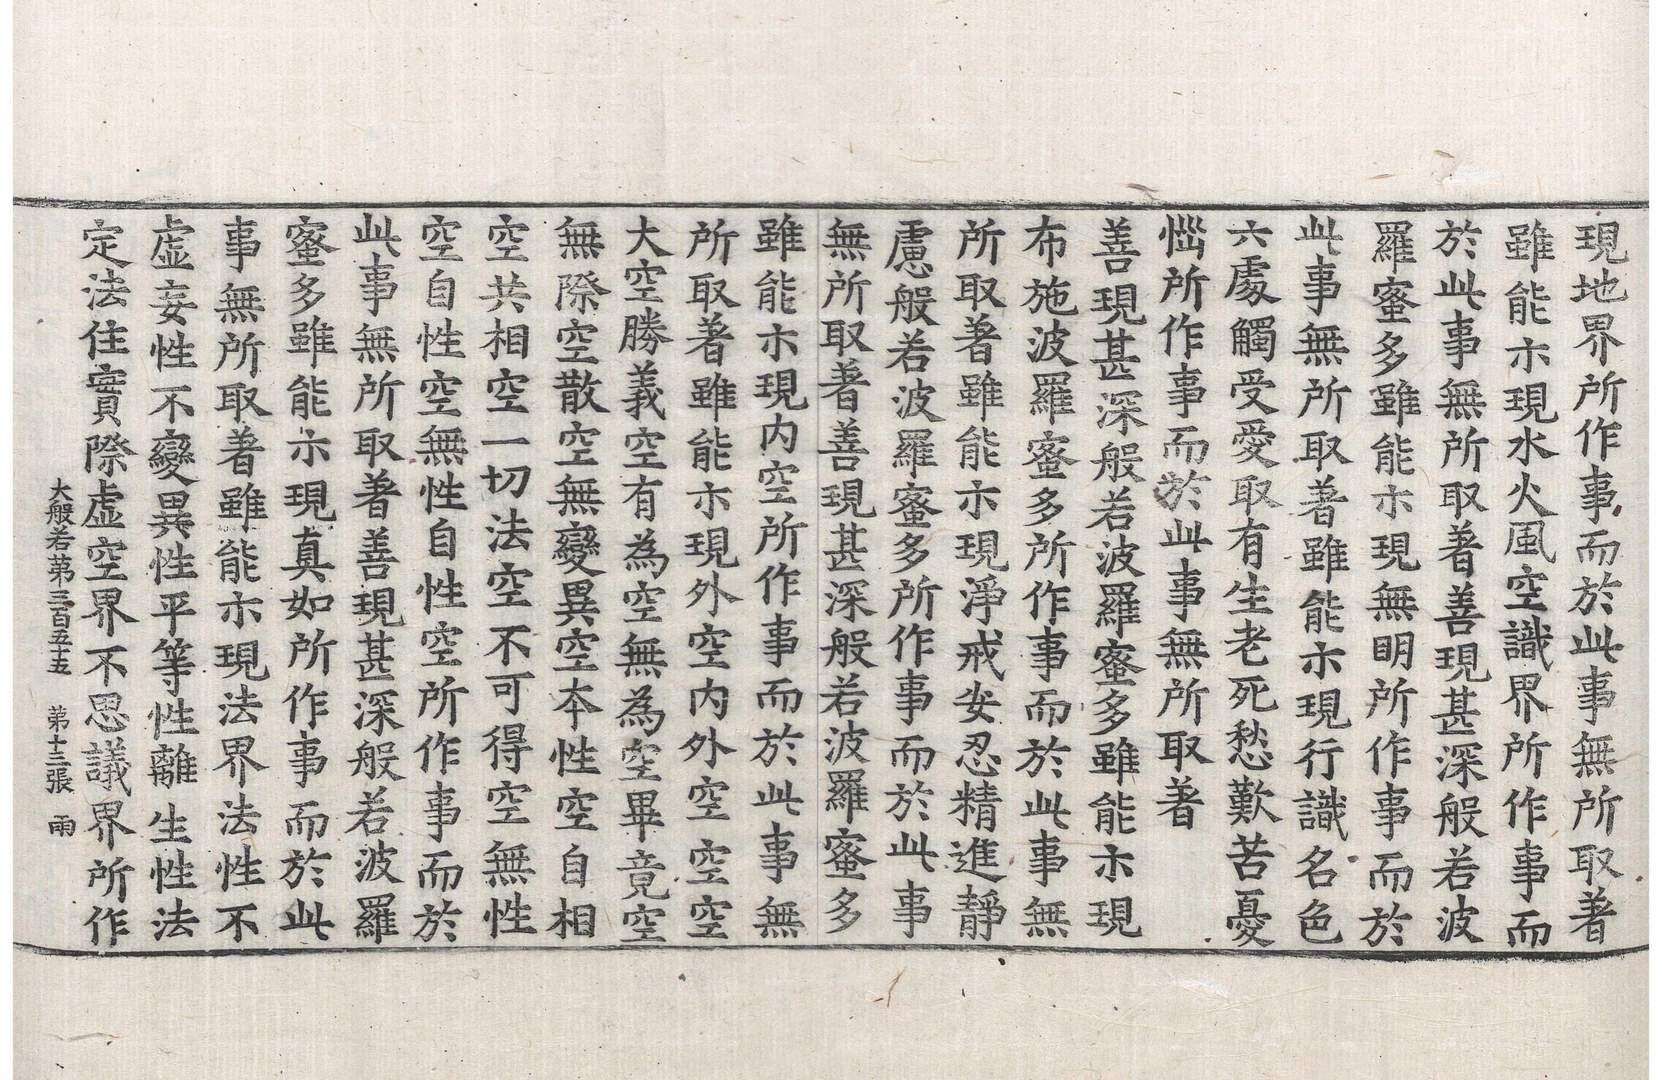 現地界所作事而於此事無所取著
雖能示現水火風空識界所作事而
於此事無所取著善現甚深般若波
羅蜜多雖能示現無明所作事而於
此事無所取著雖能示現行識名色
六處觸受愛取有生老死愁歎苦憂
惱所作事而於此事無所取著
善現甚深般若波羅蜜多雖能示現
布施波羅蜜多所作事而於此事無
所取著雖能示現淨戒安忍精進靜
慮般若波羅蜜多所作事而於此事
無所取著善現甚深般若波羅蜜多
雖能示現內空所作事而於此事無
所取著雖能示現外空內外空空空
大空勝義空有為空無為空畢竟空
無際空散空無變異空本性空自相
空共相空一切法空不可得空無性
空自性空無性自性空所作事而於
此事無所取著善現甚深般若波羅
蜜多雖能示現真如所作事而於此
事無所取著雖能示現法界法性不
虛妄性不變異性平等性離生性法
定法住實際虛空界不思議界所作
大般若第三百五十五 第十三張 雨